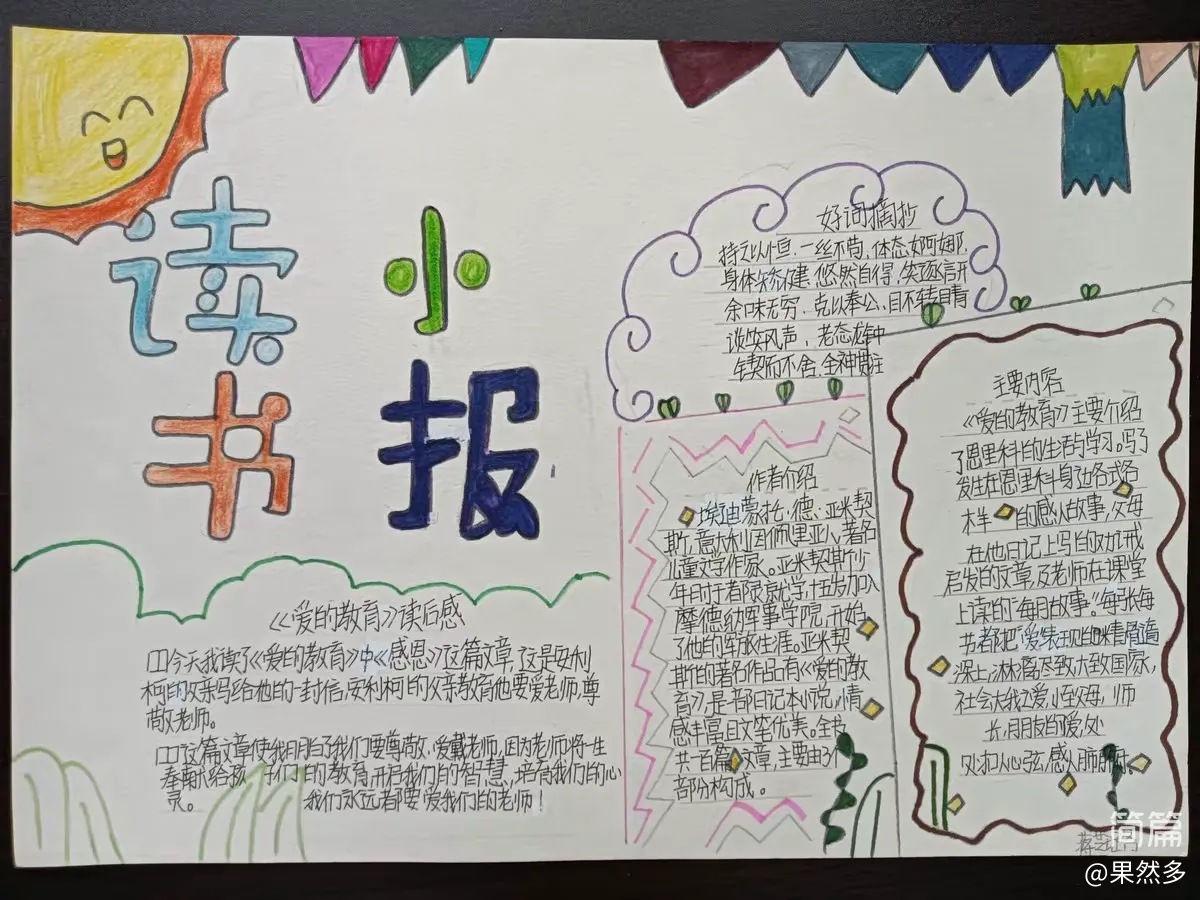 读书
小报
好词摘抄
持之以恒、一丝不苟、体态婀娜、
身体矫健、悠然自得、笑逐言开
余味无穷、克以奉公、目不转睛
谈笑风声、老态龙钟
锲而不舍、全神贯注
主要内容
《爱的教育》主要介绍
了恩里科的生活与学习。写了
发生在恩里科身边各式各
样的感人故事,父母
在他日记上写的劝诫
启发的文章,及老师在课堂
上读的"每月故事"。每张每
书都把"爱"表现的
淋漓尽致大致国家,
社会大我之爱,小至父母,师
长,朋友的爱,处
处扣人心弦,感人肺腑。
作者介绍
埃迪蒙托·德·亚米契
斯,意大利因佩里亚人、著名
儿童文学作家。亚米契斯少
年时于者隆就学,十五岁加入
摩德纳军事学院,开始
了他的军旅生涯。亚米契
斯的著名作品有《爱的教
育》,是一部日记本小说,情
感丰富且文笔优美。全书
共一百篇文章,主要由3个
部分构成。
《爱的教育》读后感
今天我读了《爱的教育》中《感恩》这篇文章,这是安利
柯的父亲写给他的一封信,安利柯的父亲教育他要爱老师,尊
敬老师。
这篇文章使我明白了我们要尊敬、爱戴老师,因为老师将一生
奉献给孩子们的教育,开启我们的智慧,培育我们的心
灵。我们永远都要爱我们的老师!
简篇
@果然多